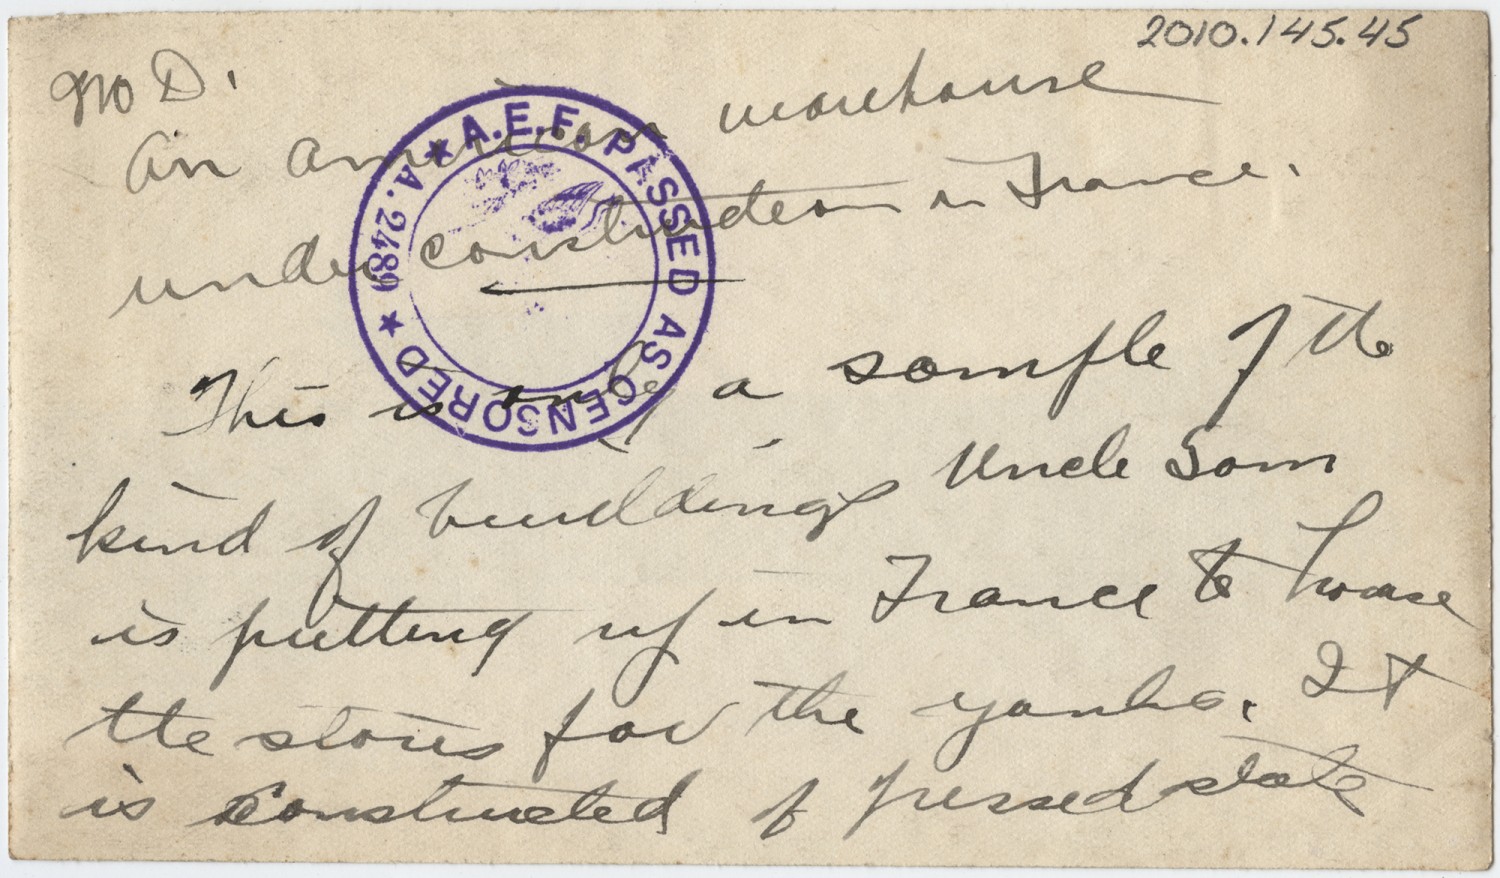 2010.145.45
No D.
An American warehouse
under construction in France.
A.E.F. PASSED AS CENSORED
A. 2489
This is only a sample of the
kind of buildings Uncle Sam
is putting up in France to house
the stores for the yanks. It
is constructed of pressed slate